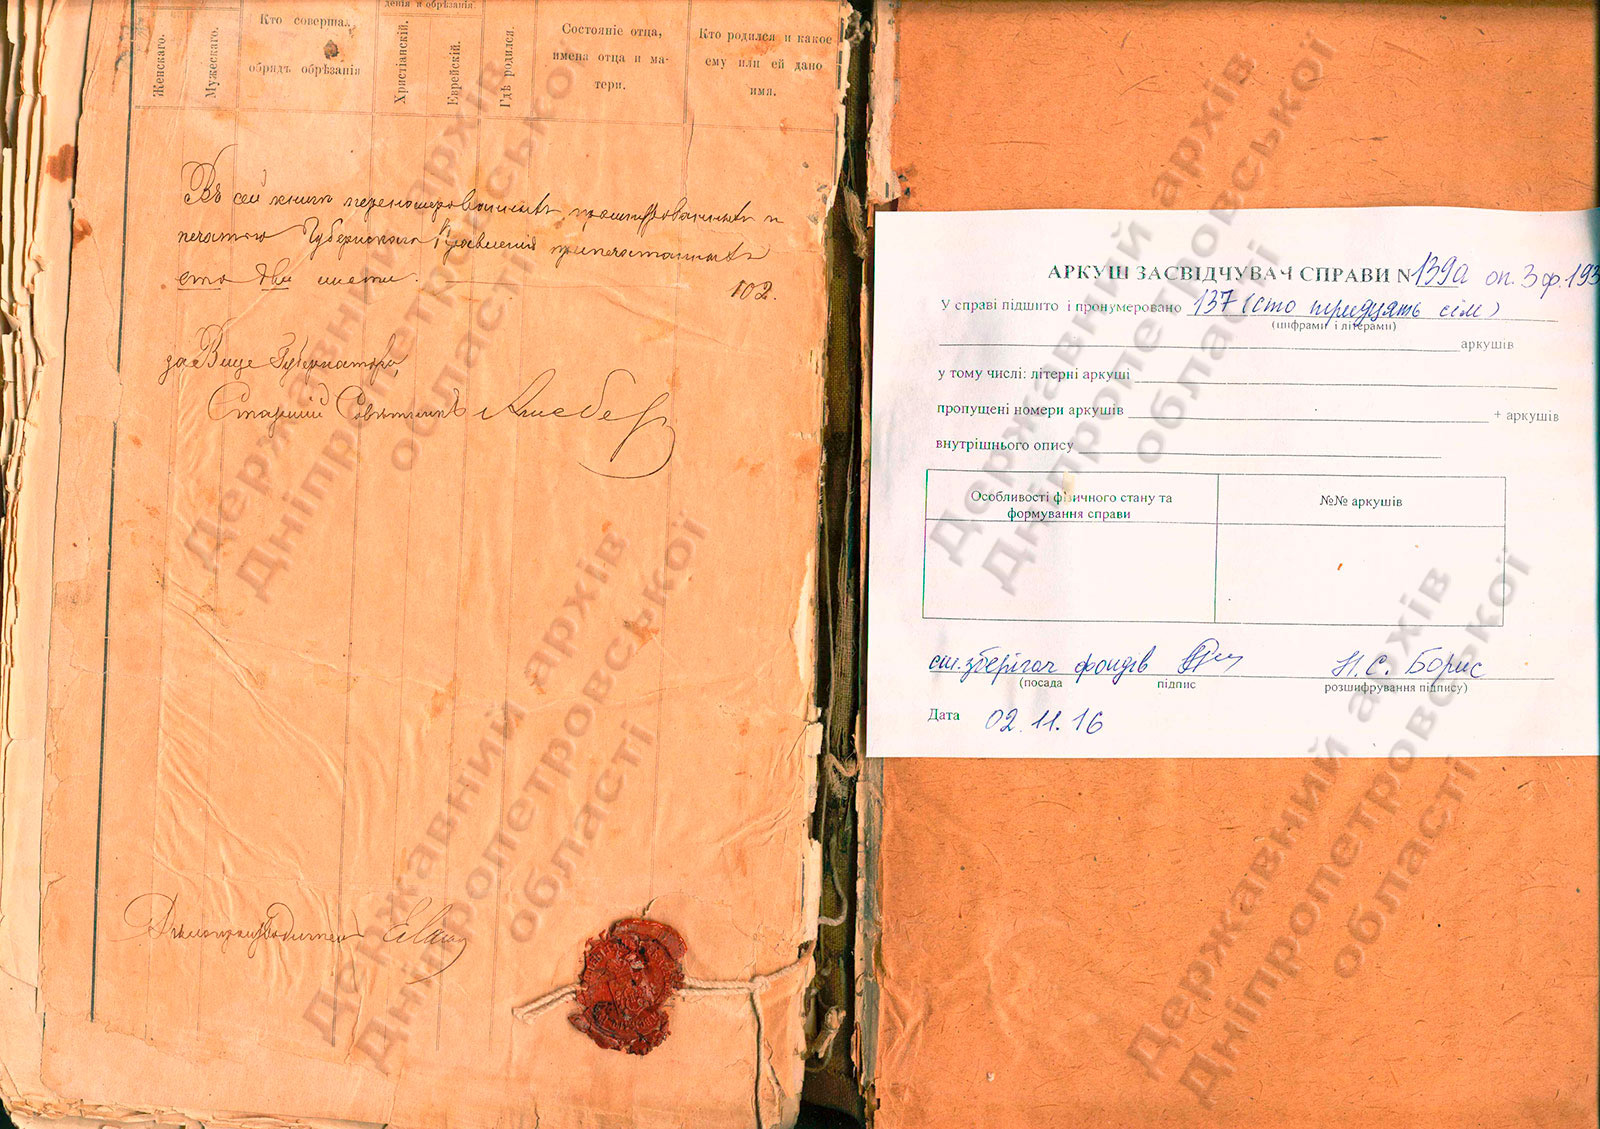 Женскаго.
Мужескаго.
Кто соверша.
обрядъ обрѣзанія
денія и обрѣзанія.
Христіанскій.
Еврейскій.
Гдѣ родился.
Состояніе отца,
имена отца и ма-
тери.
Кто родился и какое
ему или ей дано
имя.
Въ сей книгѣ перенумерованныхъ, прошнурованныхъ и
печатью Губернскаго Правленія припечатанныхъ
сто два листа.
102.
за Вице Губернатора,
Старшій Совѣтникъ
Дѣлопроизводитель
АРКУШ ЗАСВІДЧУВАЧ СПРАВИ N 139а оп. 3 ф. 193
У справі підшито і пронумеровано 137 (сто тридцять сім)
(цифрами і літерами)
аркушів
у тому числі: літерні аркуші
пропущені номери аркушів + аркушів
внутрішнього опису
Особливості фізичного стану та
формування справи
№№ аркушів
ст. зберігач фондів Н.С. Борис
(посада підпис розшифрування підпису)
Дата 02.11.16
Державний архів
Дніпропетровської
області
Державний архів
Дніпропетровської
області
Державний архів
Дніпропетровської
області
Державний архів
Дніпропетровської
області